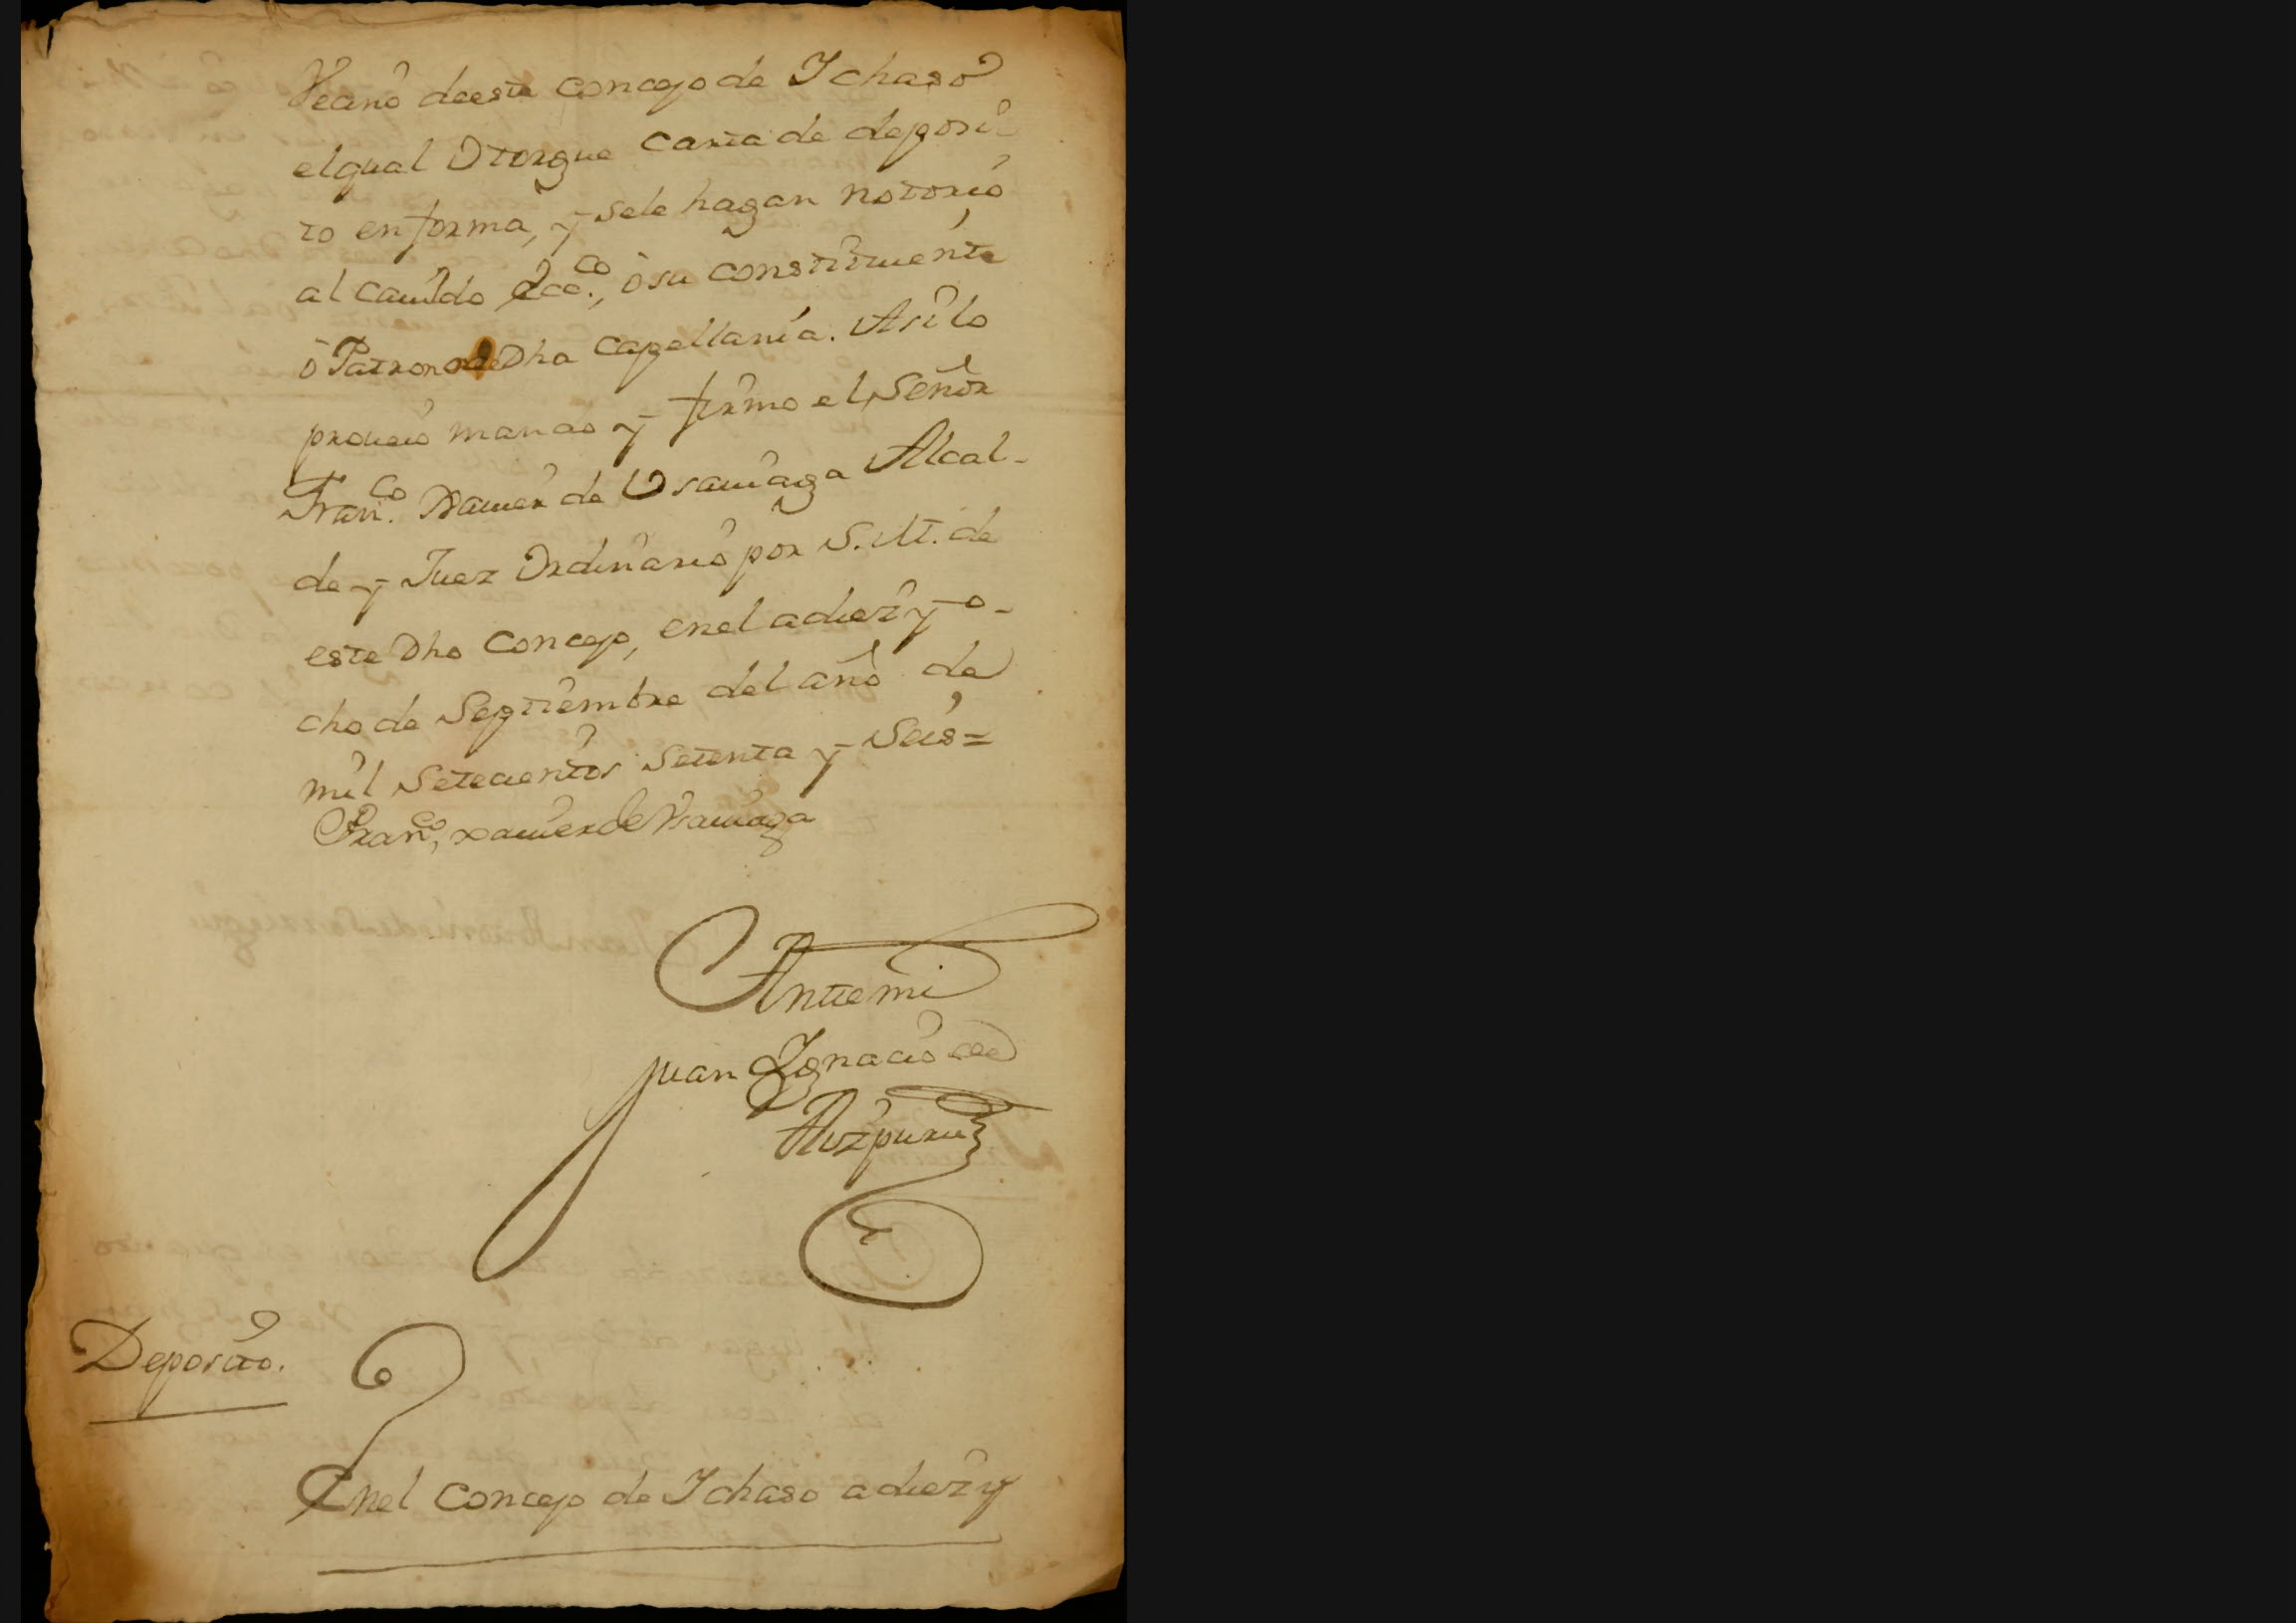 Vecino deeste concejo de Ychaso
elqual Otorgue carta de deposi
to en forma, y sele hagan notorio
al cavildo Ecc.co, ò su constituiente
ò Patrono de Dha capellania. Asi lo
proveio mando y firmo el Señor
Fran.co Xavier de Usaviaga Alcal-
de y Juez Ordinario por S. M. de
este Dho Concejo, enel a diez y o-
cho de Septiembre del año de
mil Setecientos Setenta y Seis=
Fran.co, xavier de Vsaviaga
Antte mi
Juan Ygnacio de
Aizpuru
Deposito.
Enel Concejo de Ychaso a diez y